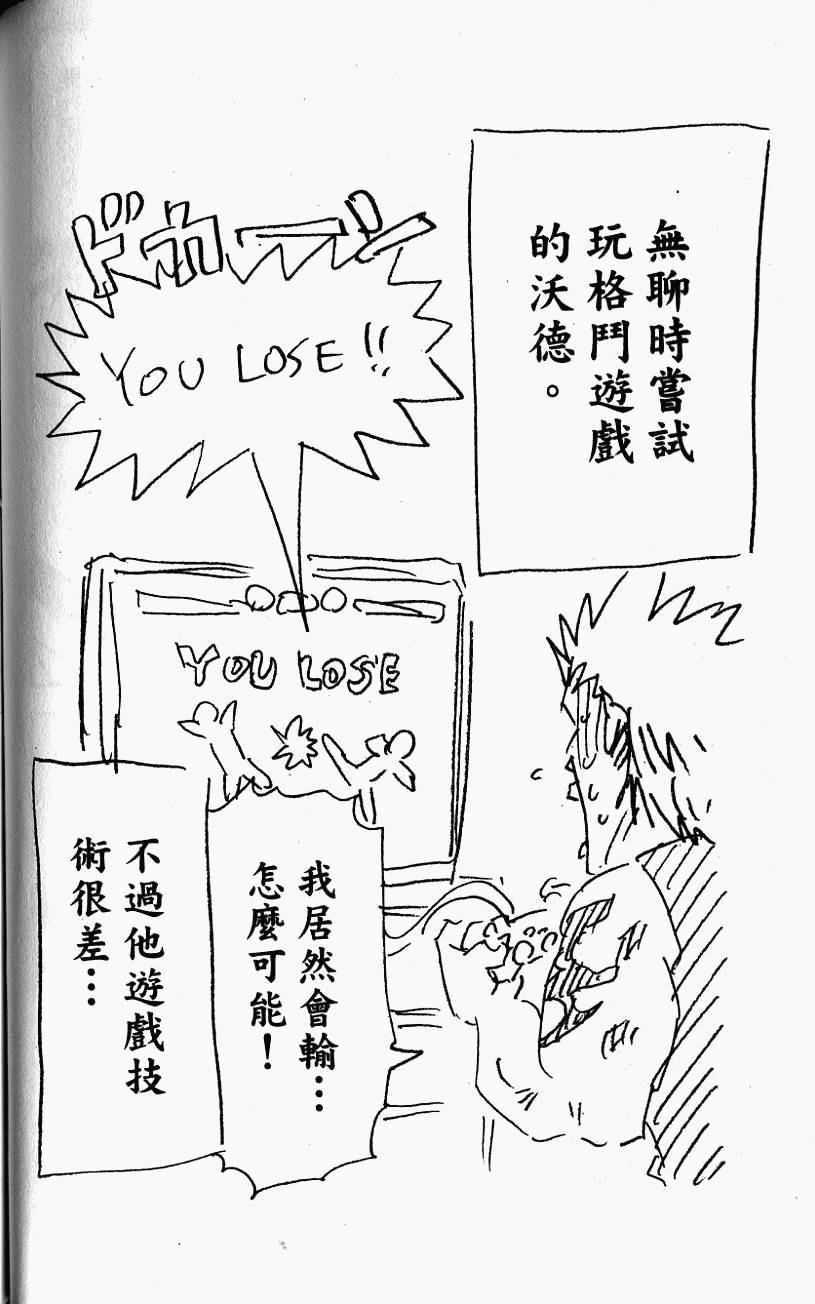 無聊時嘗試
玩格鬥遊戲
的沃德。
ドカーン
YOU LOSE!!
YOU LOSE
我居然會輸…
怎麼可能！
不過他遊戲技
術很差…